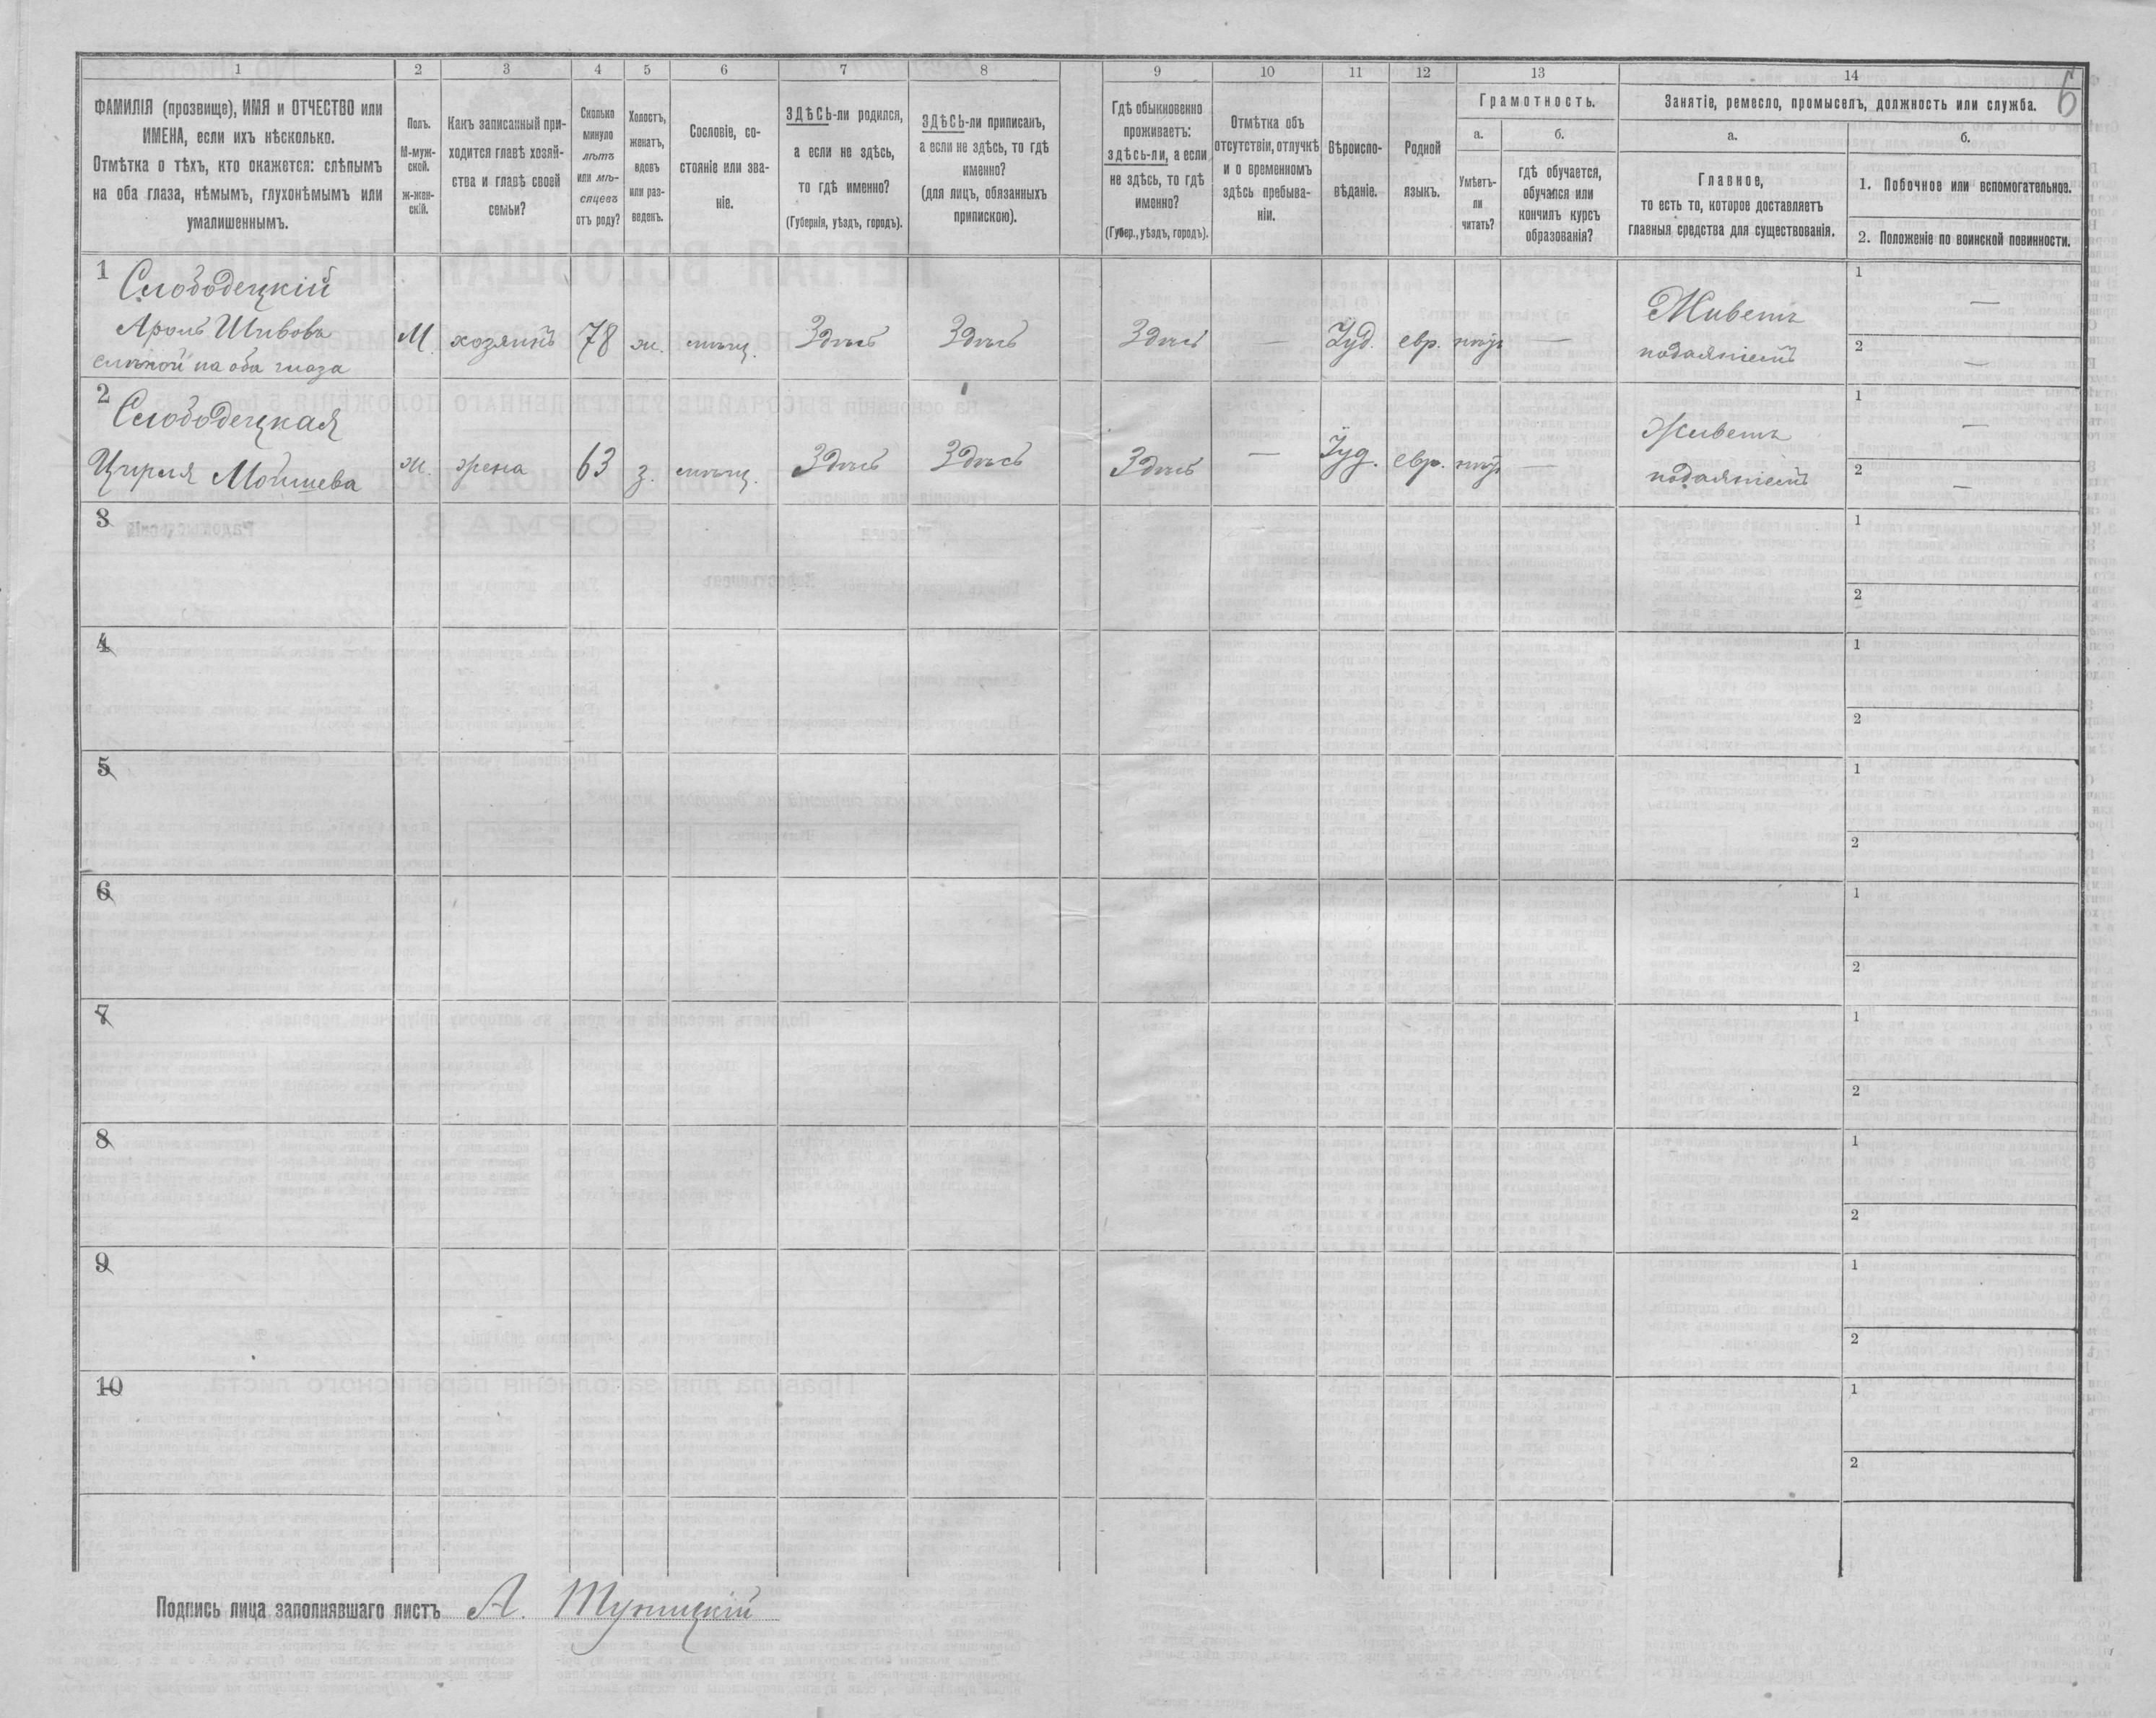 1 2 3 4 5 6 7 8 9 10 11 12 13 14
6
ФАМИЛІЯ (прозвище), ИМЯ и ОТЧЕСТВО или
ИМЕНА, если ихъ нѣсколько.
Отмѣтка о тѣхъ, кто окажется: слѣпымъ
на оба глаза, нѣмымъ, глухонѣмымъ или
умалишеннымъ.
Полъ.
М-муж-
ской.
ж-жен-
скій.
Какъ записанный при-
ходится главѣ хозяй-
ства и главѣ своей
семьи?
Сколько
минуло
лѣтъ
или мѣ-
сяцевъ
отъ роду?
Холостъ,
женатъ,
вдовъ
или раз-
веденъ.
Сословіе, со-
стояніе или зва-
ніе.
ЗДѢСЬ-ли родился,
а если не здѣсь,
то гдѣ именно?
(Губернія, уѣздъ, городъ).
ЗДѢСЬ-ли приписанъ,
а если не здѣсь, то гдѣ
именно?
(для лицъ, обязанныхъ
припискою).
Гдѣ обыкновенно
проживаетъ:
здѣсь-ли, а если
не здѣсь, то гдѣ
именно?
(Губер., уѣздъ, городъ).
Отмѣтка объ
отсутствіи, отлучкѣ
и о временномъ
здѣсь пребыва-
ніи.
Вѣроиспо-
вѣданіе.
Родной
языкъ.
Грамотность.
а. б.
Умѣетъ-
ли
читать?
гдѣ обучается,
обучался или
кончилъ курсъ
образованія?
Занятіе, ремесло, промыселъ, должность или служба.
а. б.
Главное,
то есть то, которое доставляетъ
главныя средства для существованія.
1. Побочное или вспомогательное.
2. Положеніе по воинской повинности.
1 Слободецкій
Аронъ Шивовъ
слѣпой на оба глаза
М. хозяинъ 78 ж. мѣщ. Здѣсь Здѣсь Здѣсь — Іуд. евр. нѣтъ —
Живетъ
подаяніемъ
1 —
2 —
2 Слободецкая
Цирля Мовшева
Ж. жена 63 з. мѣщ. Здѣсь Здѣсь Здѣсь — Іуд. евр. нѣтъ —
Живетъ
подаяніемъ
1 —
2 —
3 1
2
4 1
2
5 1
2
6 1
2
7 1
2
8 1
2
9 1
2
10 1
2
Подпись лица заполнявшаго листъ А. Туницкій